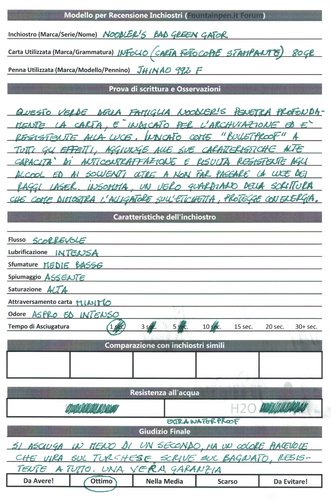 Modello per Recensione Inchiostri (Fountainpen.it Forum)
Inchiostro (Marca/Serie/Nome) NOODLER'S BAD GREEN GATOR
Carta Utilizzata (Marca/Grammatura) INFOLIO (CARTA FOTOCOPIE STAMPANTE) 80GR
Penna Utilizzata (Marca/Modello/Pennino) JINHAO 992 F
Prova di scrittura e Osservazioni
QUESTO VERDE DELLA FAMIGLIA NOODLER'S PENETRA PROFONDA-
MENTE LA CARTA, E' INDICATO PER L'ARCHIVIAZIONE ED E'
RESISTENTE ALLA LUCE. INDICATO COME "BULLETPROOF" A
TUTTI GLI EFFETTI, AGGIUNGE ALLE SUE CARATTERISTICHE ALTE
CAPACITA' DI ANTICONTRAFFAZIONE E RISULTA RESISTENTE AGLI
ALCOOL ED AI SOLVENTI OLTRE A NON FAR PASSARE LA LUCE DEI
RAGGI LASER. INSOMMA, UN VERO GUARDIANO DELLA SCRITTURA
CHE COME DIMOSTRA L'ALLIGATORE SULL'ETICHETTA, PROTEGGE CON ENERGIA.
Caratteristiche dell'inchiostro
Flusso SCORREVOLE
Lubrificazione INTENSA
Sfumature MEDIE BASSE
Spiumaggio ASSENTE
Saturazione ALTA
Attraversamento carta MINIMO
Odore ASPRO ED INTENSO
Tempo di Asciugatura 1 sec. 3 5 10 15 sec. 20 sec. 30+ sec.
Comparazione con inchiostri simili
Resistenza all'acqua
H2O
EXTRA WATERPROOF
Giudizio Finale
SI ASCIUGA IN MENO DI UN SECONDO, HA UN COLORE PIACEVOLE
CHE VIRA SUL TURCHESE SCRIVE SUL BAGNATO, RESIS-
TENTE A TUTTO. UNA VERA GARANZIA
Da Avere! Ottimo Nella Media Scarso Da Evitare!